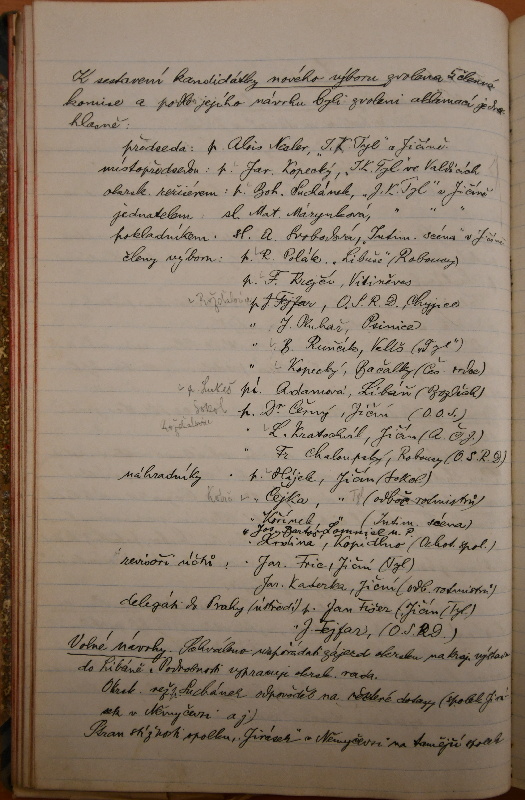 K sestavení kandidátky nového výboru zvolena 5členná
komise a podle jejího návrhu byli zvoleni aklamací jedno-
hlasně:
předseda: p. Alois Nesler, "J.K. Tyl" v Jičíně
místopředsedou: p. Jar. Kopecký, "J.K. Tyl" ve Valdicích
okrsk. režisérem: p. Boh. Suchánek, "J.K. Tyl" v Jičíně
jednatelem sl. Mat. Marynková, " " "
pokladníkem. sl. A. Svobodová, "Intim. scéna" v Jičíně
členy výboru: p. R. Polák, "Libuše" (Robousy)
p. F. Krejčí, Vitiněves
p. J. Fejfar, O.S.R.D.
" J. Pinice
" B. Runčík, Veliš ("Tyl")
" Kopecký, Bačalky
Lukeš pí. Adamová, Libáň
Sokol p. Dr Černý, Jičín (O.O.S.)
" L. Kratochvíl, Jičín (A.Č.J.)
" Fr. Chaloupský, Robousy (O.S.R.D)
náhradníky p. Hájek, Jičín (Sokol)
" Čejka, " (odboč. rotmistrů)
" Kořínek, " (Intim. scéna)
" Jos. Bartoš, Lomnice n. P.
" Rodina, Kopidlno (Ochot. spol.)
revisoři účtů, Jar. Fric, Jičín (Tyl)
Jar. Kaderka, Jičín (odb. rotmistrů)
delegáti do Prahy (ústředí) p. Jan Fišer (Jičín (Tyl)
" J. Fejfar, (O.S.R.D.)
Volné návrhy. Schváleno uspořádati zájezd okrsku na kraj. výstavu
do Libáně. Podrobnosti vypracuje okrsk. rada.
Okrsk. rež. Suchánek odpověděl na některé dotazy (spolek Jirá-
sek v Němyčevsi aj)
Stran stížnosti spolku "Jirásek" v Němyčevsi na tamější spolek